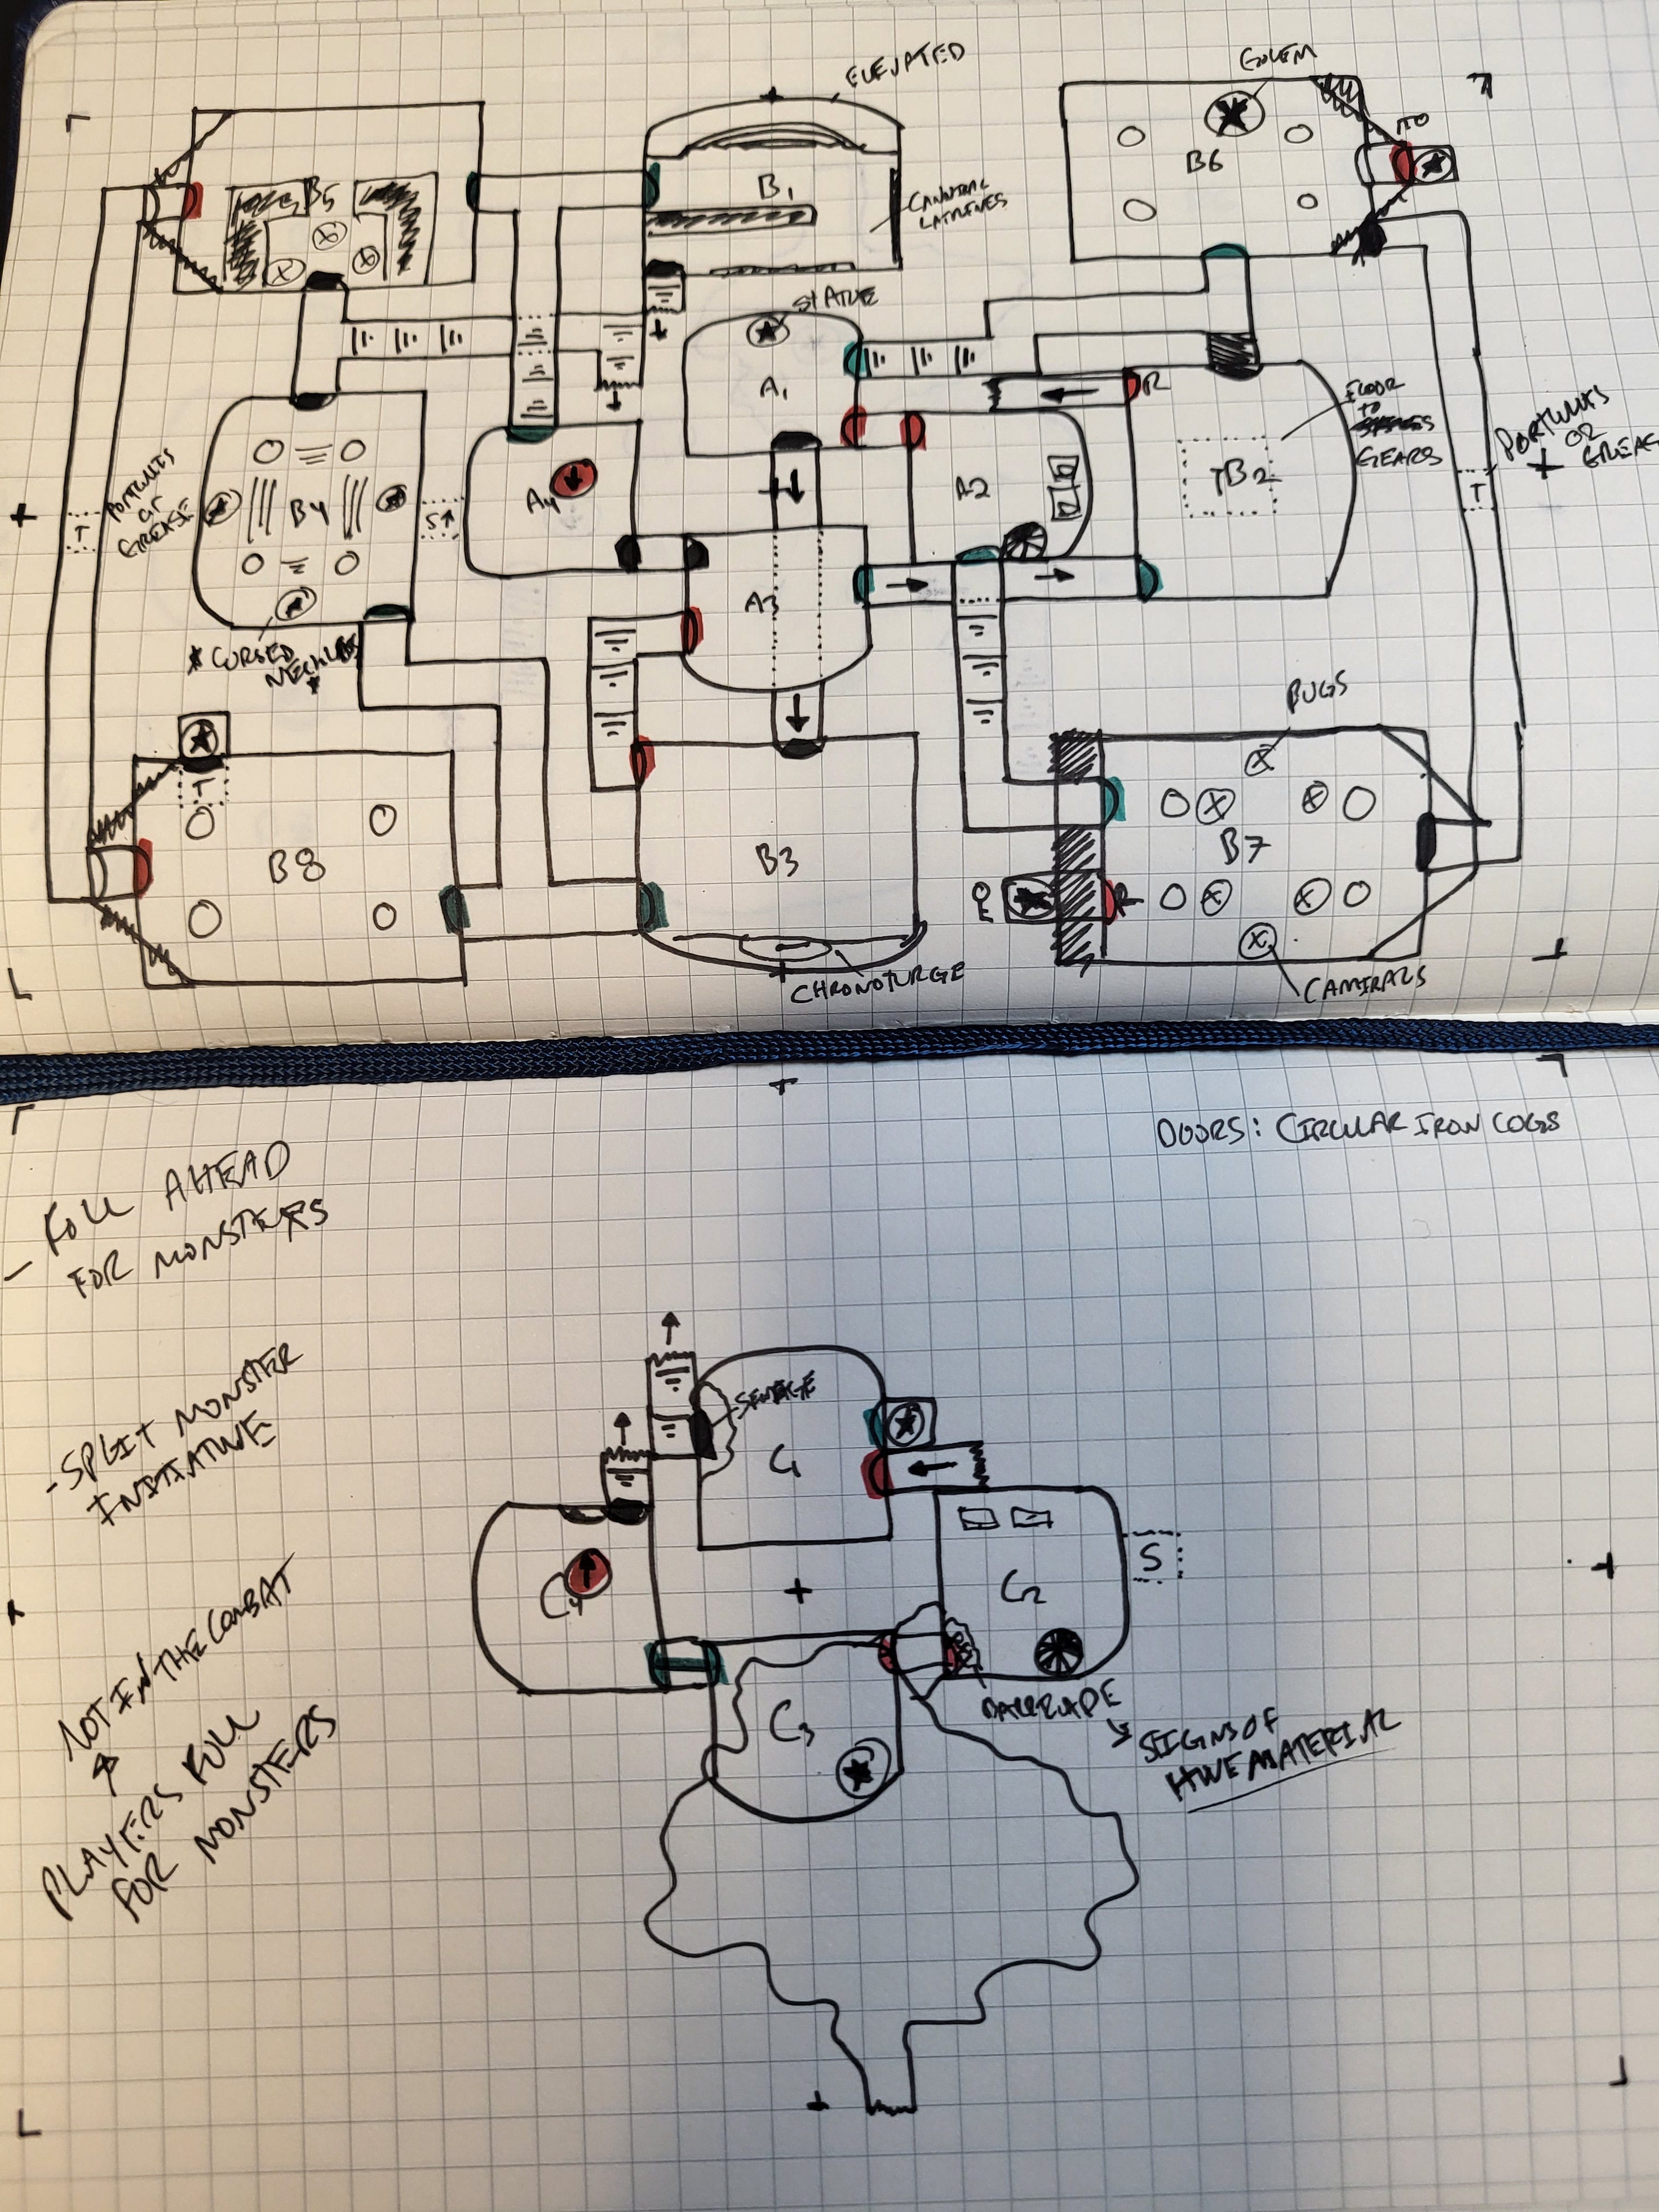 ELEVATED
GOLEM
B5
B1
B6
STATUE
A1
R
FLOOR
TO
GEARS
PORTCULLIS
OR
GREASE
A4
A2
TB2
T
T
B4
S↑
A3
* CURSED
NECKLACE
*
BUGS
T
B8
B3
B7
R
CHRONOTURGE
DOORS: CIRCULAR IRON COGS
- ROLL AHEAD
FOR MONSTERS
- SPLIT MONSTER
INITIATIVE
SEWAGE
C1
C4
C2
S
C3
SIGNS OF
HIVE MATERIAL
NOT IN THE COMBAT
PLAYERS ROLL
FOR MONSTERS